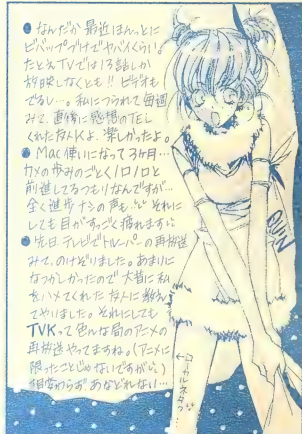 ● なんだか最近ほんっとに
ビバップづけでヤバイくらい。
たとえTVでは13話しか
放映しなくとも!! ビデオも
でるし…。私につられて毎週
みて、直後に感想のTELを
くれた友人Kよ。楽しかったよ。
● Mac使いになって3ヶ月…
カメの歩みのごとくノロノロと
前進してるつもりなんですが…
全く進歩ナシの声も。それに
しても目がすっごく疲れます
● 先日テレビでトルーパーの再放送
みて、のけぞりました。あまりに
なつかしかったので大昔に私
をハメてくれた友人に教え
てやりました。それにしても
TVKって色んな局のアニメの
再放送やってますね。(アニメに
限ったことじゃないですがい)
相変わらずあなどれない…
←ローカルネタ
QUIN